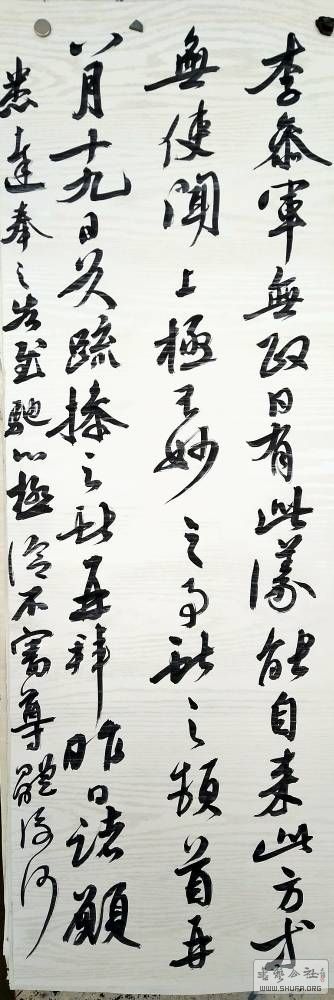 李參軍無政日有此議能自來此方才
無使聞上極不妙之事獻之頓首再
八月十九日父疏操之獻再拜昨日諸願
悉達奉之告慰馳心極冷不審尊體復何
书艺公社
WWW.SHUFA.ORG